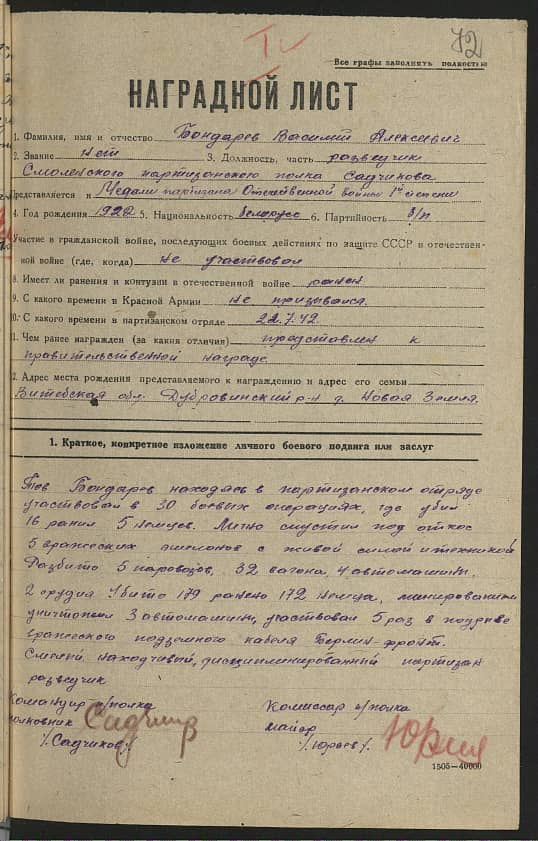 72
IV
Все графы заполнять полностью
НАГРАДНОЙ ЛИСТ
1. Фамилия, имя и отчество Бондарев Василий Алексеевич
2. Звание нет 3. Должность, часть разведчик
Смоленского партизанского полка Садчикова
Представляется к Медали партизана Отечественной войны 1й степени
4. Год рождения 1922 5. Национальность белорус 6. Партийность б/п
Участие в гражданской войне, последующих боевых действиях по защите СССР и отечествен-
ной войне (где, когда) не участвовал
8. Имеет ли ранения и контузии в отечественной войне ранен
9. С какого времени в Красной Армии не призывался.
10. С какого времени в партизанском отряде 22.7.42
1. Чем ранее награжден (за какия отличия) представлен к
правительственной награде
2. Адрес места рождения представляемого к награждению и адрес его семьи
Витебская обл. Дубровинский р-н д. Новая Земля.
1. Краткое, конкретное изложение личного боевого подвига или заслуг
Тов Бондарев находясь в партизанском отряде
участвовал в 30 боевых операциях, где убил
16 ранил 5 немцев. Лично спустил под откос
5 вражеских эшелонов с живой силой и техникой
Разбито 5 паровозов, 32 вагона, 4 автомашины,
2 орудия Убито 179 ранено 172 немца, минированием
уничтожил 3 автомашины, участвовал 5 раз в подрыве
вражеского подземного кабеля Берлин-фронт.
Смелый находчивый, дисциплинированный партизан
разведчик
Командир п/полка Комиссар п/полка
полковник Садчиков майор Юрьев
/Садчиков/ /Юрьев/.
1505—40000